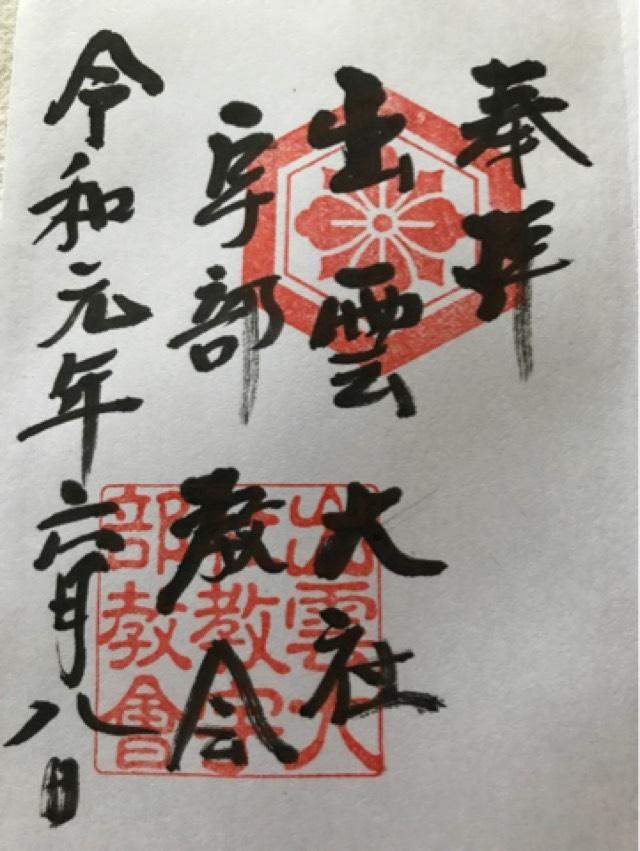 奉拝
出雲大社
宇部教会
令和元年六月八日
出雲大
社教宇
部教會